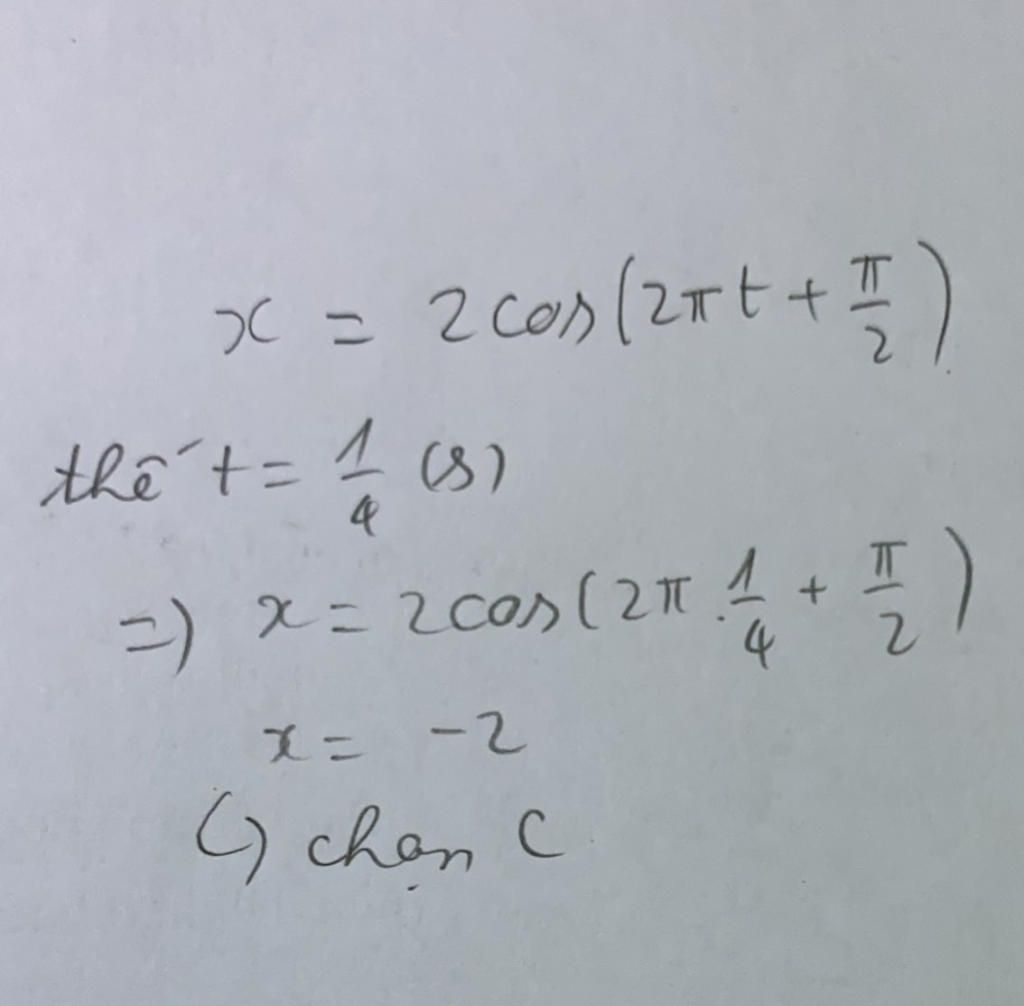 x = 2cos(2πt + π/2)
thế t = 1/4 (s)
=) x = 2cos(2π . 1/4 + π/2)
x = -2
↪ chọn C